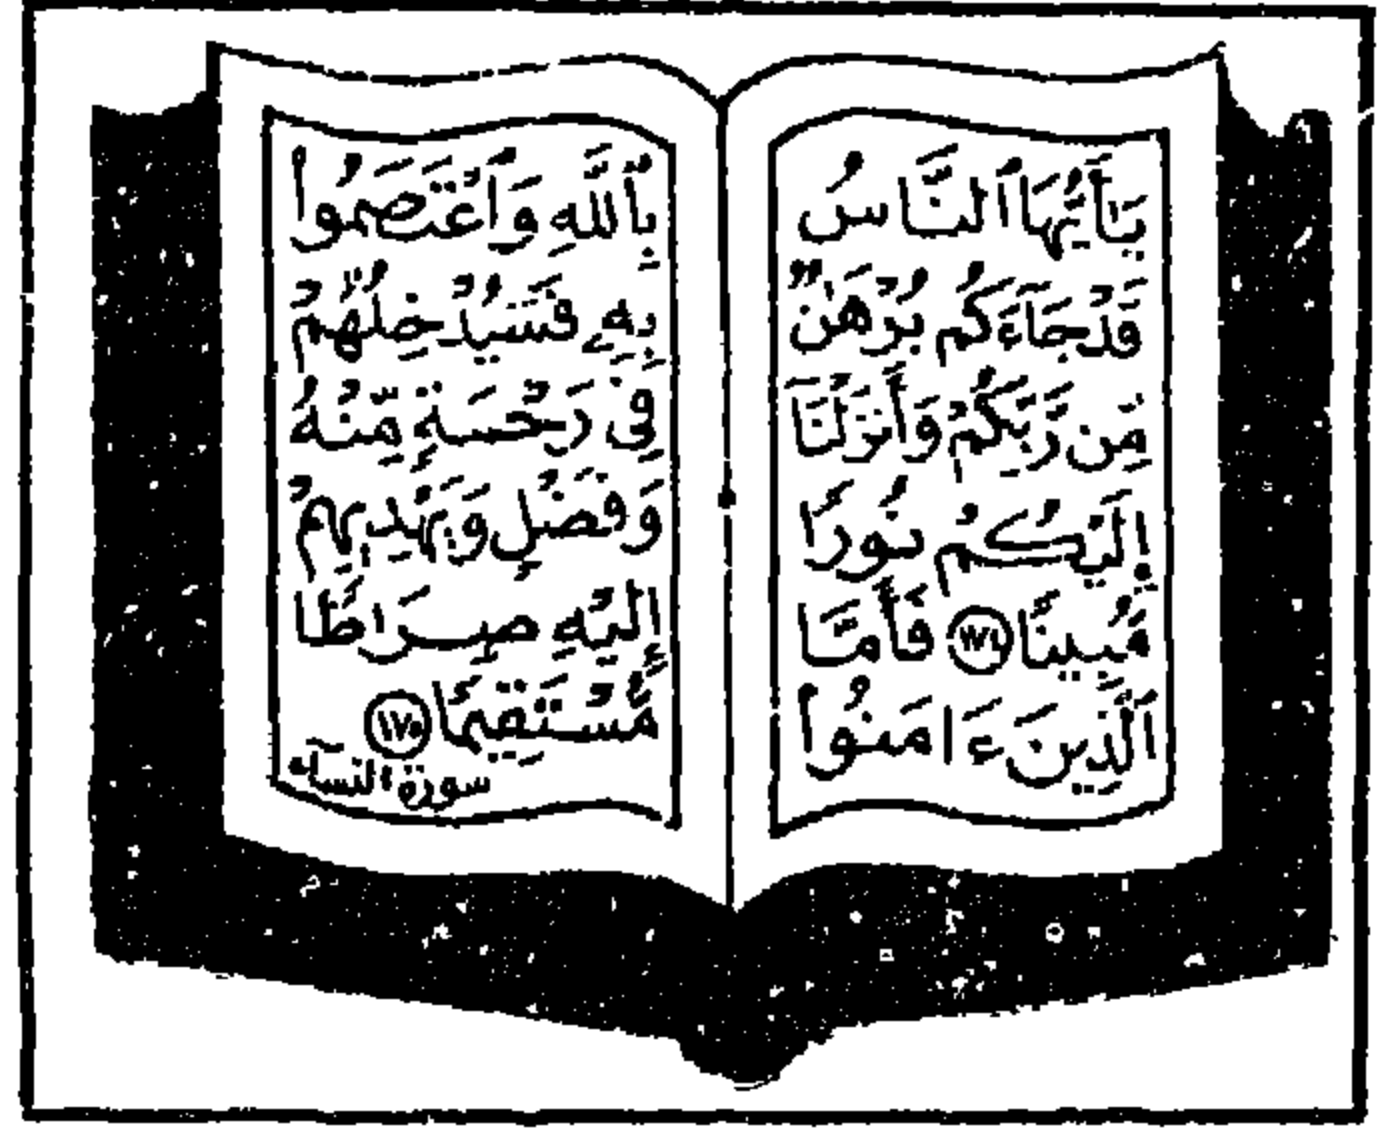 يَٰٓأَيُّهَا ٱلنَّاسُ
قَدْ جَآءَكُم بُرْهَٰنٌ
مِّن رَّبِّكُمْ وَأَنزَلْنَآ
إِلَيْكُمْ نُورًا
مُّبِينًا ١٧٤ فَأَمَّا
ٱلَّذِينَ ءَامَنُوا
بِٱللَّهِ وَٱعْتَصَمُوا
بِهِۦ فَسَيُدْخِلُهُمْ
فِى رَحْمَةٍ مِّنْهُ
وَفَضْلٍ وَيَهْدِيهِمْ
إِلَيْهِ صِرَاطًا
مُّسْتَقِيمًا ١٧٥
سورة النساء